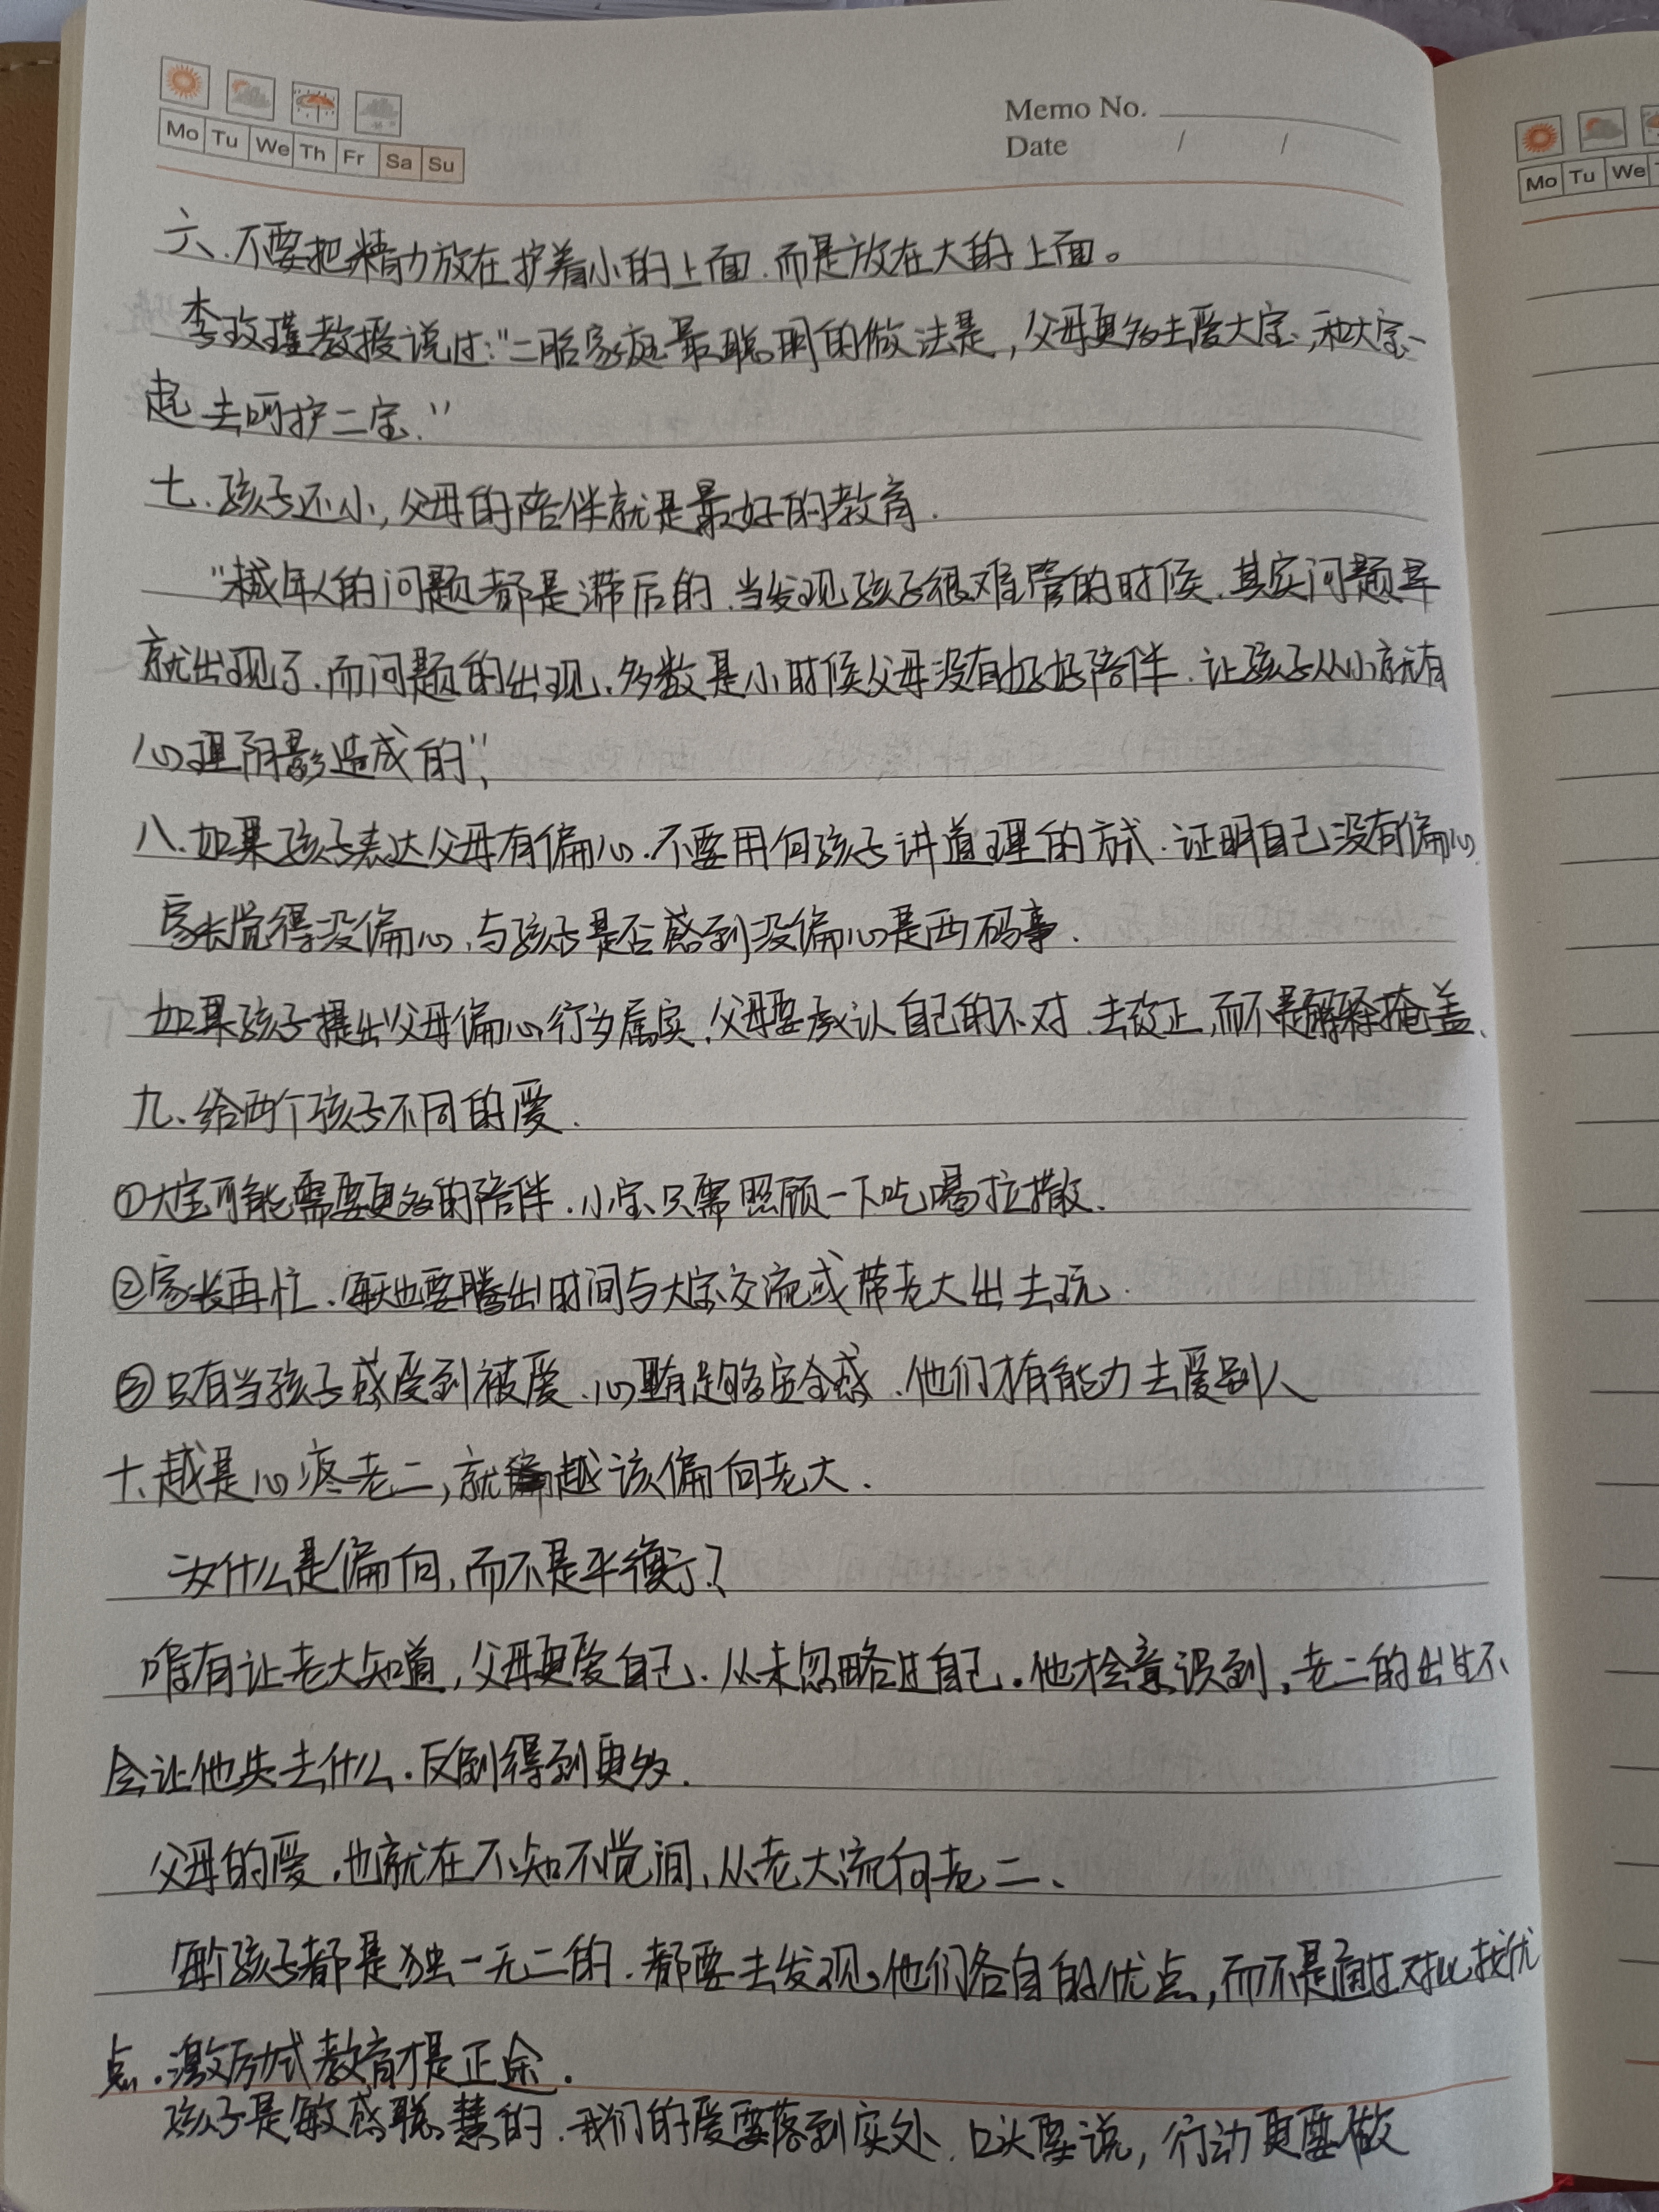 Mo Tu We Th Fr Sa Su
Memo No.
Date / /
Mo Tu We
六、不要把精力放在护着小的上面，而是放在大的上面。
李玫瑾教授说过:"二胎家庭最聪明的做法是，父母更多去爱大宝，和大宝一
起去呵护二宝."
七、孩子还小，父母的陪伴就是最好的教育.
"年人的问题都是滞后的，当发现孩子很难管的时候，其实问题早
就出现了，而问题的出现，多数是小时候父母没有好好陪伴，让孩子从小就有
心理阴影造成的"，
八、如果孩子表达父母有偏心，不要用向孩子讲道理的方式，证明自己没有偏心，
家长觉得没偏心，与孩子是否感到没偏心是两码事.
如果孩子提出"父母偏心"行为属实，父母要承认自己的不对，去改正，而不是解释掩盖、
九、给两个孩子不同的爱.
①大宝可能需要更多的陪伴，小宝只需照顾一下吃喝拉撒.
②家长再忙、每天也要腾出时间与大宝交流或带老大出去玩.
③只有当孩子感受到被爱、心里有足够安全感，他们才有能力去爱别人
十、越是心疼老二，就越该偏向老大.
为什么是偏向，而不是平衡了？
唯有让老大知道，父母更爱自己，从未忽略过自己。他才会意识到，老二的出生不
会让他失去什么。反倒得到更多.
父母的爱，也就在不知不觉间、从老大流向老二、
每个孩子都是独一无二的，都要去发现他们各自的优点，而不是通过对比找优
点。激励式教育才是正途.
孩子是敏感聪慧的，我们的爱要落到实处，口头要说，行动更要做